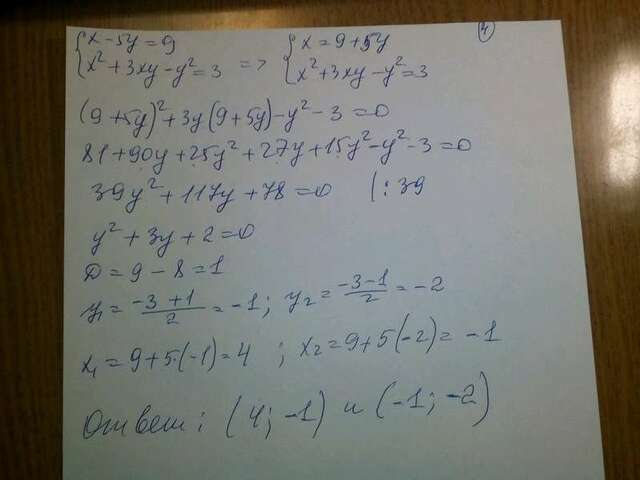 ④
{ x - 5y = 9 { x = 9 + 5y
{ x² + 3xy - y² = 3 => { x² + 3xy - y² = 3
(9 + 5y)² + 3y(9 + 5y) - y² - 3 = 0
81 + 90y + 25y² + 27y + 15y² - y² - 3 = 0
39y² + 117y + 78 = 0 | : 39
y² + 3y + 2 = 0
D = 9 - 8 = 1
y₁ = (-3 + 1)/2 = -1; y₂ = (-3 - 1)/2 = -2
x₁ = 9 + 5·(-1) = 4 ; x₂ = 9 + 5(-2) = -1
Ответ: (4; -1) и (-1; -2)